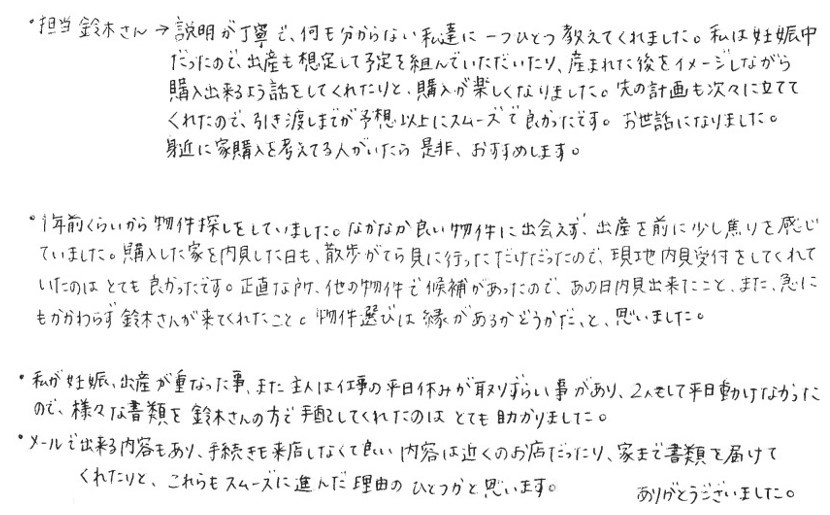 ・担当 鈴木さん → 説明が丁寧で、何も分からない私達に一つひとつ教えてくれました。私は妊娠中
だったので、出産も想定して予定を組んでいただいたり、産まれた後をイメージしながら
購入出来るよう話をしてくれたりと、購入が楽しくなりました。先の計画も次々に立てて
くれたので、引き渡しまでが予想以上にスムーズで良かったです。お世話になりました。
身近に家購入を考えてる人がいたら是非、おすすめします。
・1年前くらいから物件探しをしていました。なかなか良い物件に出会えず、出産を前に少し焦りを感じ
ていました。購入した家を内見した日も、散歩がてら見に行っただけだったので、現地内見受付をしてくれて
いたのはとても良かったです。正直な所、他の物件で候補があったので、あの日内見出来たこと、また、急に
もかかわらず鈴木さんが来てくれたこと。物件選びは縁があるかどうかだ、と、思いました。
・私が妊娠、出産が重なった事、また主人は仕事の平日休みが取りずらい事があり、2人して平日動けなかった
ので、様々な書類を鈴木さんの方で手配してくれたのはとても助かりました。
・メールで出来る内容もあり、手続きも来店しなくて良い内容は近くのお店だったり、家まで書類を届けて
くれたりと、これらもスムーズに進んだ理由のひとつかと思います。 ありがとうございました。